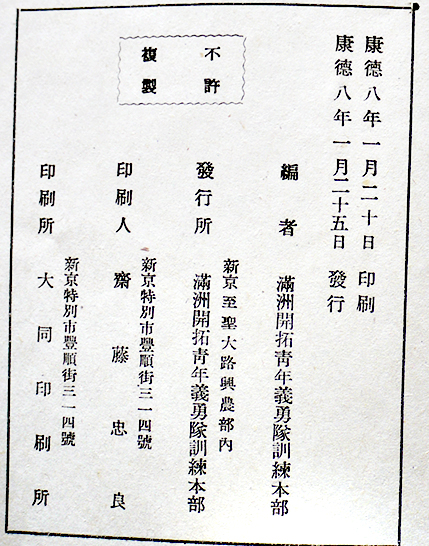 康德八年一月二十日 印刷
康德八年一月二十五日 發行
不許
複製
編者 滿洲開拓靑年義勇隊訓練本部
新京至聖大路興農部內
發行所 滿洲開拓靑年義勇隊訓練本部
新京特別市豐順街三一四號
印刷人 齋藤忠良
新京特別市豐順街三一四號
印刷所 大同印刷所